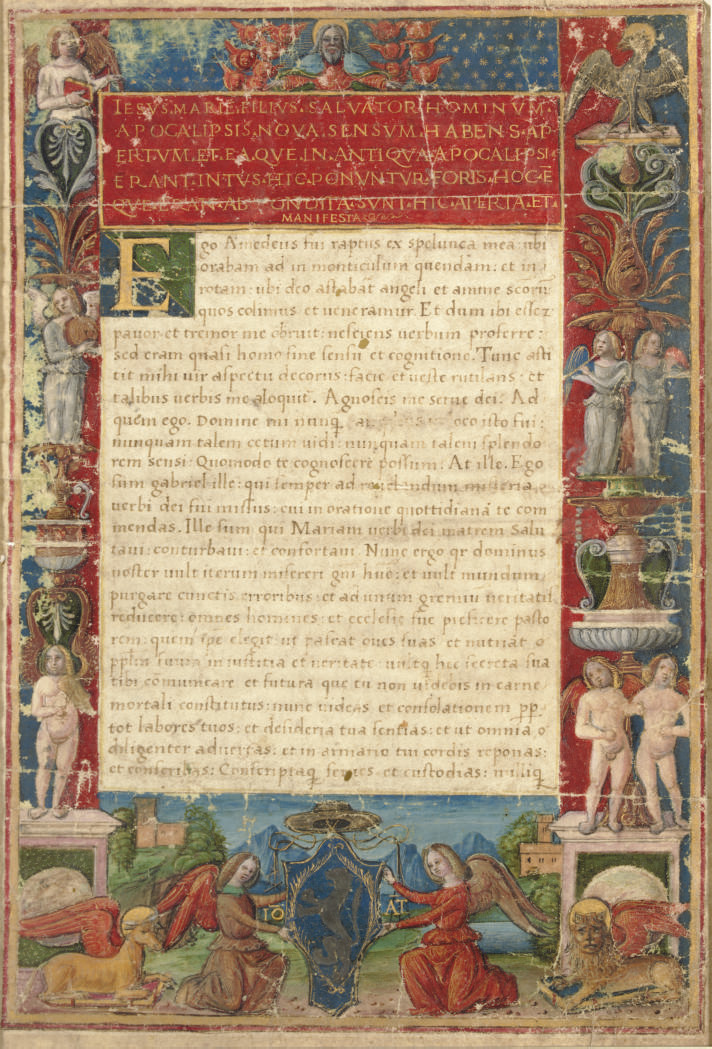 IESVS.MARIE.FILIVS.SALVATOR.HOMINVM.
APOCALIPSIS.NOVA.SENSVM.HABENS.AP
ERTVM.ET.EA.QVE.IN.ANTIQVA.APOCALIPSI
ERANT.INTVS.HIC.PONVNTVR.FORIS.HOC.E
QVE.ERAN.ABSCONDITA.SVNT.HIC.APERTA.ET.
MANIFESTA
Ego Amedeus fui raptus ex spelunca mea ubi
orabam ad in monticulum quendam: et in
rotam: ubi deo astabat angeli et anime scorū
quos colimus et veneramur. Et dum ibi essez
pavor et tremor me obruit: nesciens verbum proferre:
sed eram quasi homo sine sensu et cognitione. Tunc asti
tit mihi vir aspectu decorus: facie et veste rutilans: et
talibus verbis me aloquit̄. Agnoscis me serve dei. Ad
quem ego. Domine mi nunq̄ loco isto fui:
nunquam talem cetum vidi: nunquam talem splendo
rem sensi: Quomodo te cognoscere possum. At ille. Ego
sum gabriel ille: qui semper ad misteria
verbi dei fui missus: cui in oratione quottidiana te com
mendas. Ille sum qui Mariam verbi dei matrem Salu
tavi: conturbavi: et confortavi. Nunc ergo qr dominus
noster vult iterum misereri gñi huc: et vult mundum
purgare cunctis erroribus: et ad unum gremiu veritatis
reducere: omnes homines: et ecclesie sue preficere pasto
rem: quem ipse elegit ut pascat oves suas et nutriat
pplm suum in iustitia et veritate: hec secreta sua
tibi comunicare et futura que tu non videbis in carne
mortali constitutus: nunc videas et consolationem pp̄.
tot labores tuos: et desideria tua sentias: et ut omnia
diligenter advertas: et in armario tui cordis reponas:
et conscribas: Conscriptaq̄ serves et custodias:
IO AT